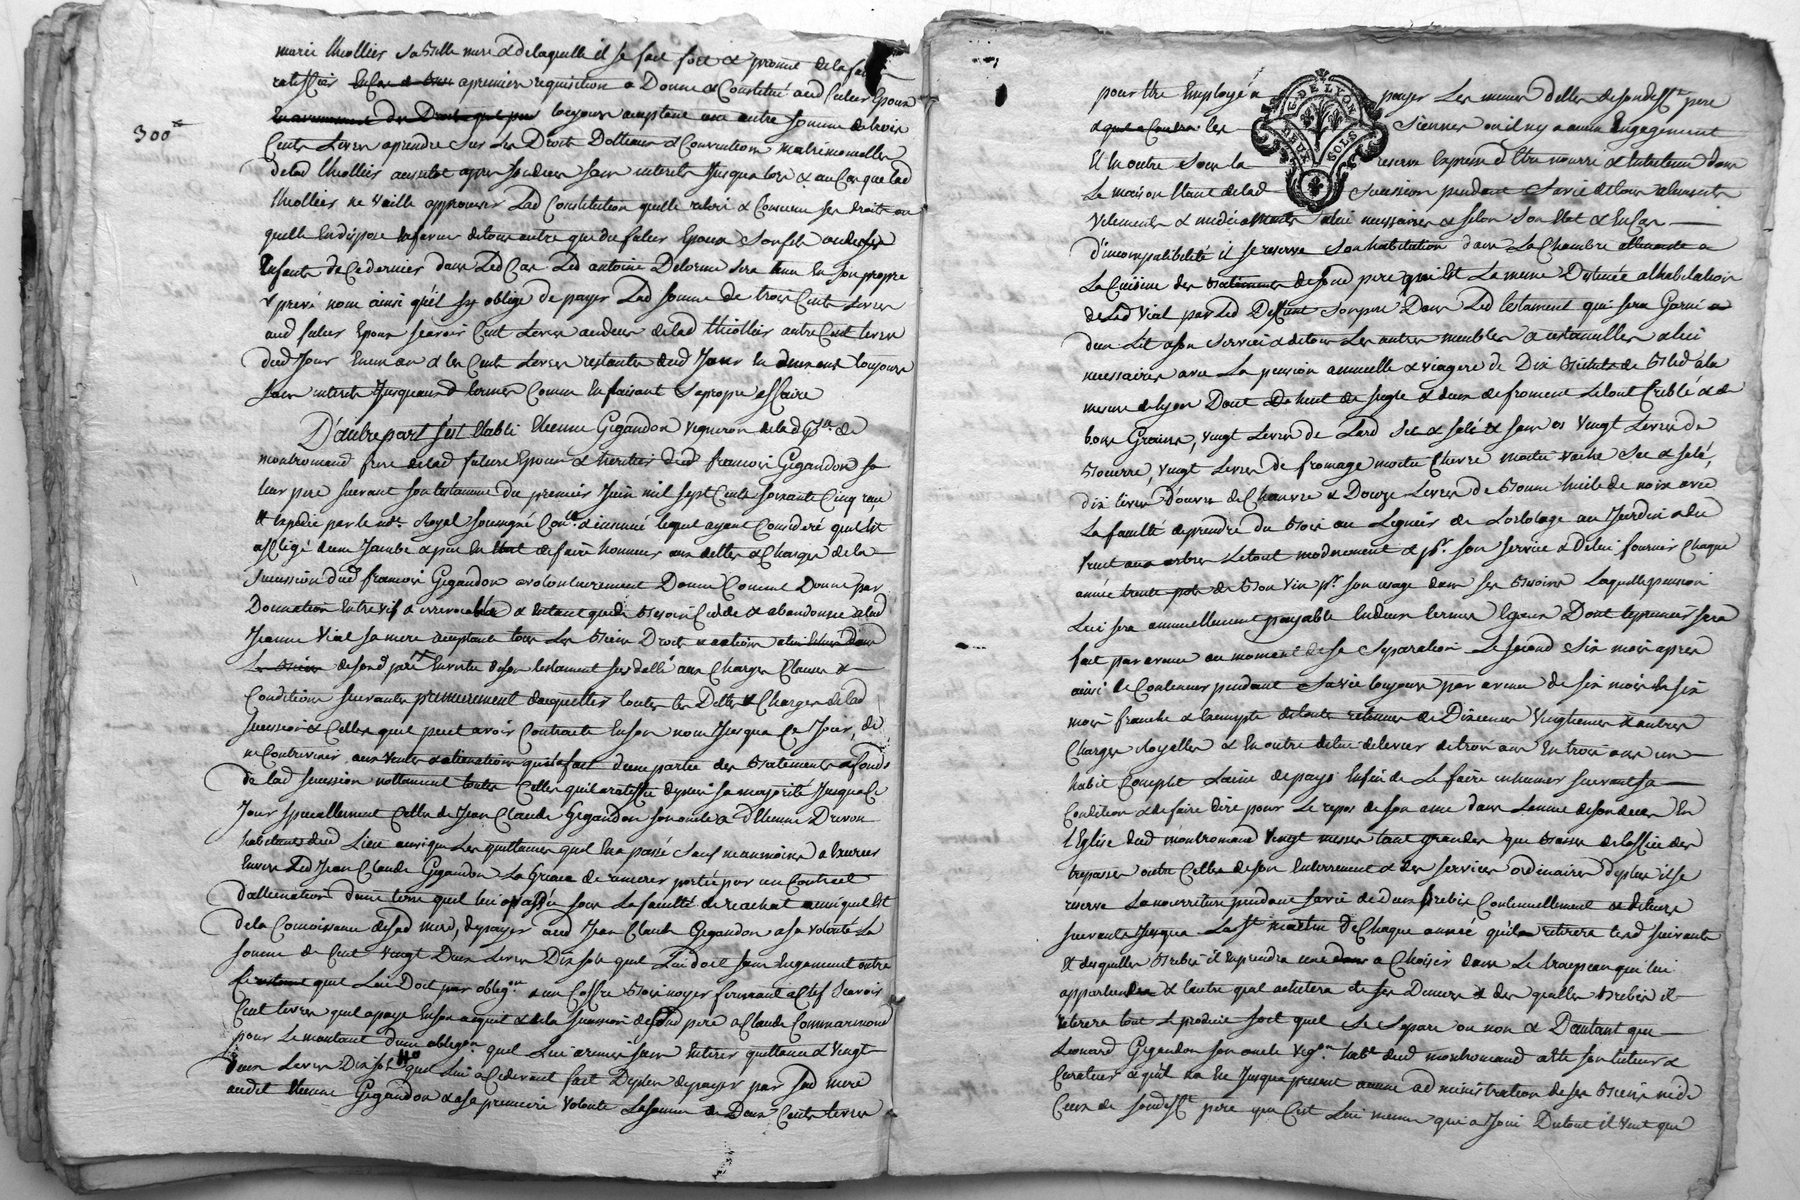 marie thiollier sa belle mere & delaquelle il se fait fort & promet de la faire
ratiffier apremiere requisition a Donné & Constitué aud futur Epoux
toujours acceptant une autre somme de trois
300ᵗᵗ
Cents Livres aprendre sur Les Droits Dotteaux & Conventions matrimonialles
delad thiollier aussitot apres son deces sans interets Jusqua lors & au Cas que lad
thiollier ne Veille approuver Lad Constitution quelle retire & Consume ses droits ou
quelle En dispose En faveur de tous autre que du futur Epoux Son fils ou des
Enfants de Ce dernier dans Led Cas Led antoine Delorme sera tenu En son propre
& privé nom ainsi quil sy oblige de payer Lad somme de trois Cents Livres
aud futur Epoux scavoir Cent Livres au deces delad thiollier autre Cent Livres
dud Jour En un an & les Cent Livres restante dud Jour En deux ans toujours
sans interets Jusquauxd termes Comme En faisant Sa propre affaire
D'autre part s'est Etabli Etienne Gigandon Vigneron delad psse de
montromand frere delad future Epouse & heritier dud francois Gigandon
leur pere suivant son testament du premier Juin mil sept Cents soixante Cinq recu
& Expedié par le no.re Royal soussigné Con.lé & insinué lequel ayant Consideré quil Est
affligé dune Jambe & peu En Etat de faire honneur aux dettes & Charges de la
Succession dud francois Gigandon a volontairement Donné Comme Donne par
Donnation Entre vif & irrevocable & En tant que de besoin Cedde & abandonne alad
Jeanne Vial sa mere acceptante tous Les biens Droits & actions
desond pere En vertu de son testament susdatté aux Charges Clauses &
Conditions suivantes premierement dacquitter toutes les Dettes & Charges delad
succession & Celles quil peut avoir Contracté En son nom Jusqua Ce Jour, de
ne Contrevenir aux Ventes & alienations quil a fait dune partie des batiments & fonds
de lad succession nottament toutes Celles quil a ratiffié depuis sa majorité Jusqua Ce
Jour specialement Celle de Jean Claude Gigandon son oncle & d'Etienne Drevon
habitants dud Lieu ainsi que Les quittances quil En a passé sauf neanmoins a Exercer
Envers Led Jean Claude Gigandon La Grace de remerer portée par un Contract
dallienation dune terre quil lui a passé sous La faculté de reachat ainsi quil Est
de la Connoissance de sad mere, de payer aud Jean Claude Gigandon a sa Volonté La
somme de Cent Vingt Deux Livres Dix sols quil Lui doit sans Engagement outre
quil Lui Doit par oblig.on & un Coffre bois noyer fermant a Clef scavoir
Cent Livres quil a payé En son acquit & de la succession de sond pere a Claude Commarmond
pour Le montant dune oblig.on quil Lui a remis sans Entirer quittance & Vingt
deux Livres Dix sols quil Lui a Cidevant fait De plus de payer par sad mere
audit Etienne Gigandon & a sa premiere Volonté La somme de Deux Cents Livres
pour Etre Employé a payer Les memes dettes de sondefft pere
les Siennes ou il ny a aucun Engagement
Et En outre Sous la reserve Expresse d'Etre nourri & Entretenu dans
La maison Etant delad Succession pendant Sa vie de tous aliments
Vetements & medicaments a lui necessaires & selon Son Etat & En Cas
d'incompatibilité il se reserve Son habitation dans La Chambre attenante a
La Cuisine des batiments desond pere qui Est La meme Destinée a lhabitation
delad Vial par Led Deffunt Son pere Dans Led testament qui sera Garni
dun Lit a son service & de tous Les autres meubles & ustancilles a lui
necessaires avec La pension annuelle & viagere de Dix bichets de bled a la
mesure de Lyon Dont huit de seigle & deux de froment Le tout Criblé & de
bons Grains, Vingt Livres de Lard Sec & salé & sans os Vingt Livres de
beurre, Vingt Livres de fromage moitié Chevre moitié vache Sec & salé,
dix Livres D'œuvre de Chanvre & Douze Livres de bonne huile de noix avec
La faculté de prendre du bois au Legnier de Lortolage au Jardin & du
fruit aux arbres Le tout moderement & pr. son service & De lui fournir Chaque
année trente pots de bon Vin pr. son usage dans ses besoins Laquelle pension
Lui sera annuellement payable En deux termes Egaux Dont le premier sera
fait par avance au moment de sa Separation Le second Six mois apres
ainsi de Continuer pendant Sa vie toujours par avance de six mois En six
mois franche & Exempte de toute retenue de Dixiemes Vingtiemes & autres
Charges Royalles & En outre de lui delivrer de trois ans En trois ans un
habit Complet Laine de pays Enfin de Le faire inhumer suivant sa
Condition & de faire dire pour Le repos de son ame dans Lannée de son deces En
l'Eglise dud montromand Vingt messes tant grandes que basses de loffice des
trepassés outre Celles de son Enterrement & des services ordinaires De plus il se
reserve La nourriture pendant sa vie de Deux brebis Continuellement & de leurs
suivants Jusqua La St martin de Chaque année quil retirera Lesd suivants
& desquelles brebis il En prendra une a Choisir dans Le troupeau qui lui
appartiendra & l'autre quil achetera de ses Deniers & des quelles brebis il
retirera tout Le produit soit quil Se Separe ou non & D'autant que
Leonard Gigandon son oncle Vig.on hab.t dud montromand a Eté son tuteur &
Curateur & quil na Eu Jusqua present aucune administration de ses biens ni de
Ceux de sondefft pere que Cest Lui meme qui a Joui Du tout il Veut que
G. DE LYON
DEUX SOLS